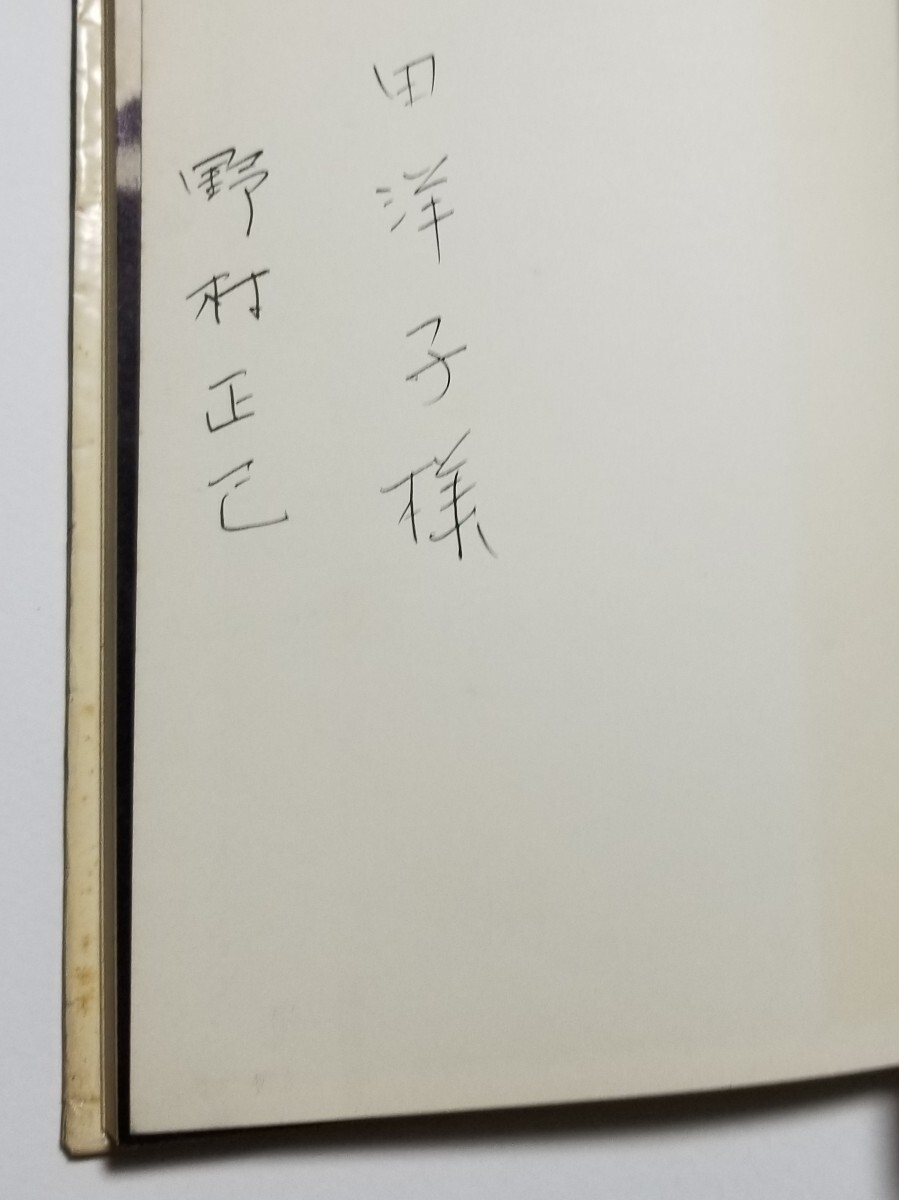 田洋子様
野村正己